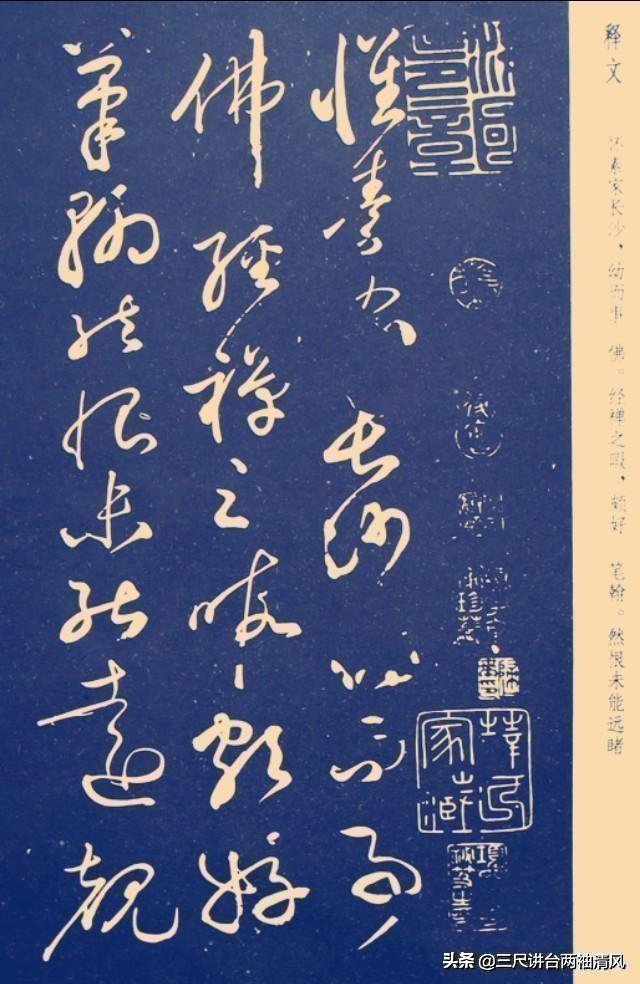 释文 怀素家长沙，幼而事 佛。经禅之暇，颇好 笔翰。然恨未能远睹
懷素家長沙幼而事
佛經禪之暇頗好
筆翰然恨未能遠覩
头条 @三尺讲台两袖清风